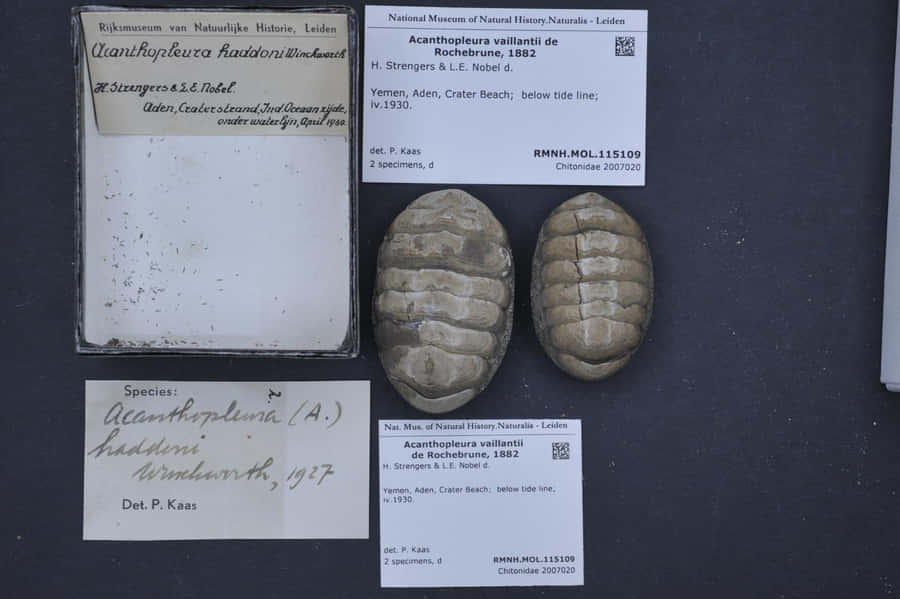 Rijksmuseum van Natuurlijke Historie, Leiden
Acanthopleura haddoni Winckworth
H. Strengers & L.E. Nobel.
Aden, Craterstrand, Ind. Oceaan zijde,
onder waterlijn, April 1930.
National Museum of Natural History.Naturalis - Leiden
Acanthopleura vaillantii de
Rochebrune, 1882
H. Strengers & L.E. Nobel d.
Yemen, Aden, Crater Beach; below tide line;
iv.1930.
det. P. Kaas
RMNH.MOL.115109
2 specimens, d
Chitonidae 2007020
Species:
2.
Acanthopleura (A.)
haddoni
Winckworth, 1927
Det. P. Kaas
Nat. Mus. of Natural History.Naturalis - Leiden
Acanthopleura vaillantii
de Rochebrune, 1882
H. Strengers & L.E. Nobel d.
Yemen, Aden, Crater Beach; below tide line;
iv.1930.
det. P. Kaas
RMNH.MOL.115109
2 specimens, d
Chitonidae 2007020